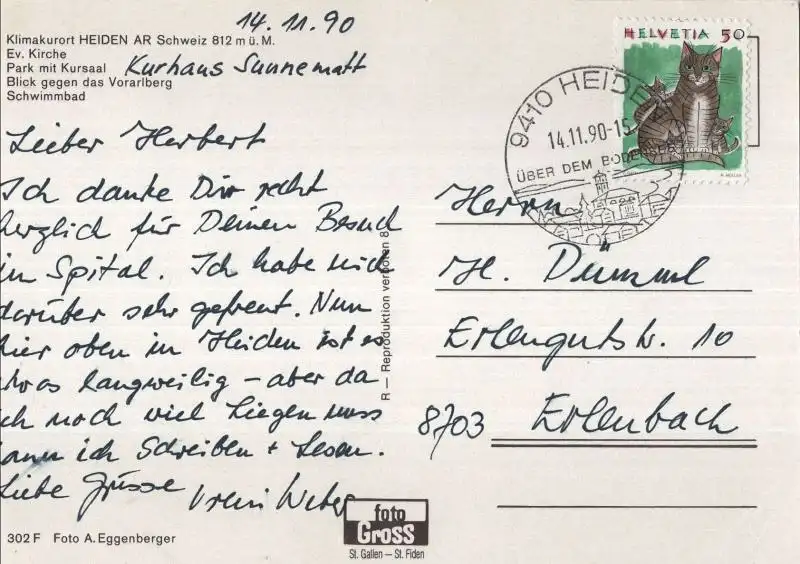 14.11.90
Klimakurort HEIDEN AR Schweiz 812 m ü. M.
Ev. Kirche
Park mit Kursaal
Kurhaus Sunnematt
Blick gegen das Vorarlberg
Schwimmbad
Lieber Herbert
Ich danke Dir recht
herzlich für Deinen Besuch
im Spital. Ich habe mich
darüber sehr gefreut. Nun
hier oben in Heiden ist es
etwas langweilig – aber da
ich noch viel liegen muss
kann ich Schreiben + Lesen.
Liebe Grüsse Vreni Weber
302 F Foto A. Eggenberger
R — Reproduktion verboten 8
foto
Gross
St. Gallen – St. Fiden
HELVETIA 50
9410 HEIDEN
14.11.90-15
ÜBER DEM BODENSEE
Herrn
H. Dümml
Erlengutstr. 10
8703 Erlenbach